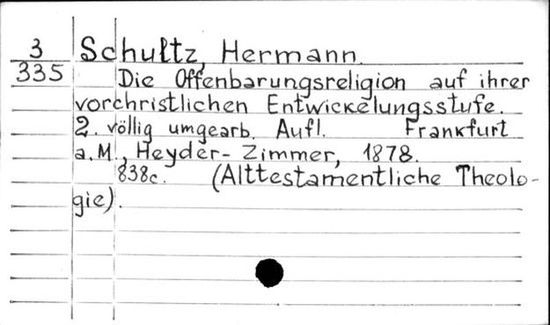 3 Schultz, Hermann.
335 Die Offenbarungsreligion auf ihrer
vorchristlichen Entwickelungsstufe.
2. völlig umgearb. Aufl. Frankfurt
a.M., Heyder-Zimmer, 1878.
838c. (Alttestamentliche Theolo-
gie).